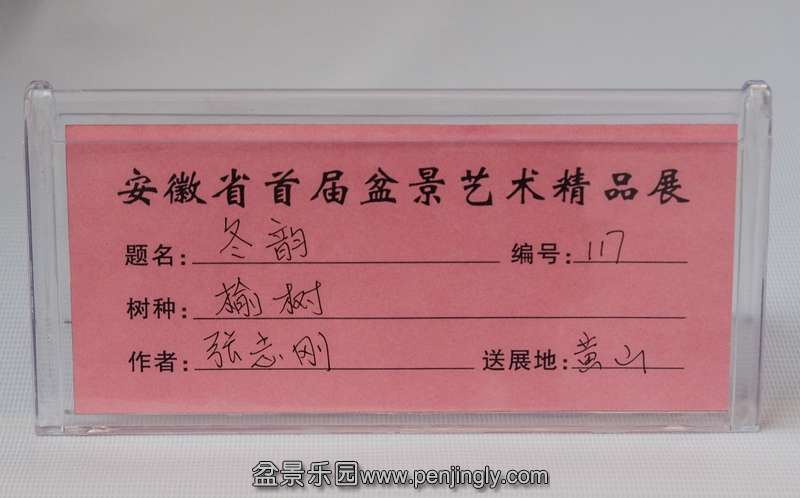 安徽省首届盆景艺术精品展
题名: 冬韵 编号: 117
树种: 榆树
作者: 张志刚 送展地: 黄山
盆景乐园www.penjingly.com